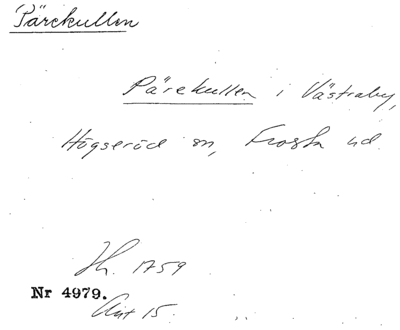 Pärekullen
Pärekullen i Västraby,
Högseröd sn, Frosta hd.
Lh. 1759
Nr 4979.
Akt 15.